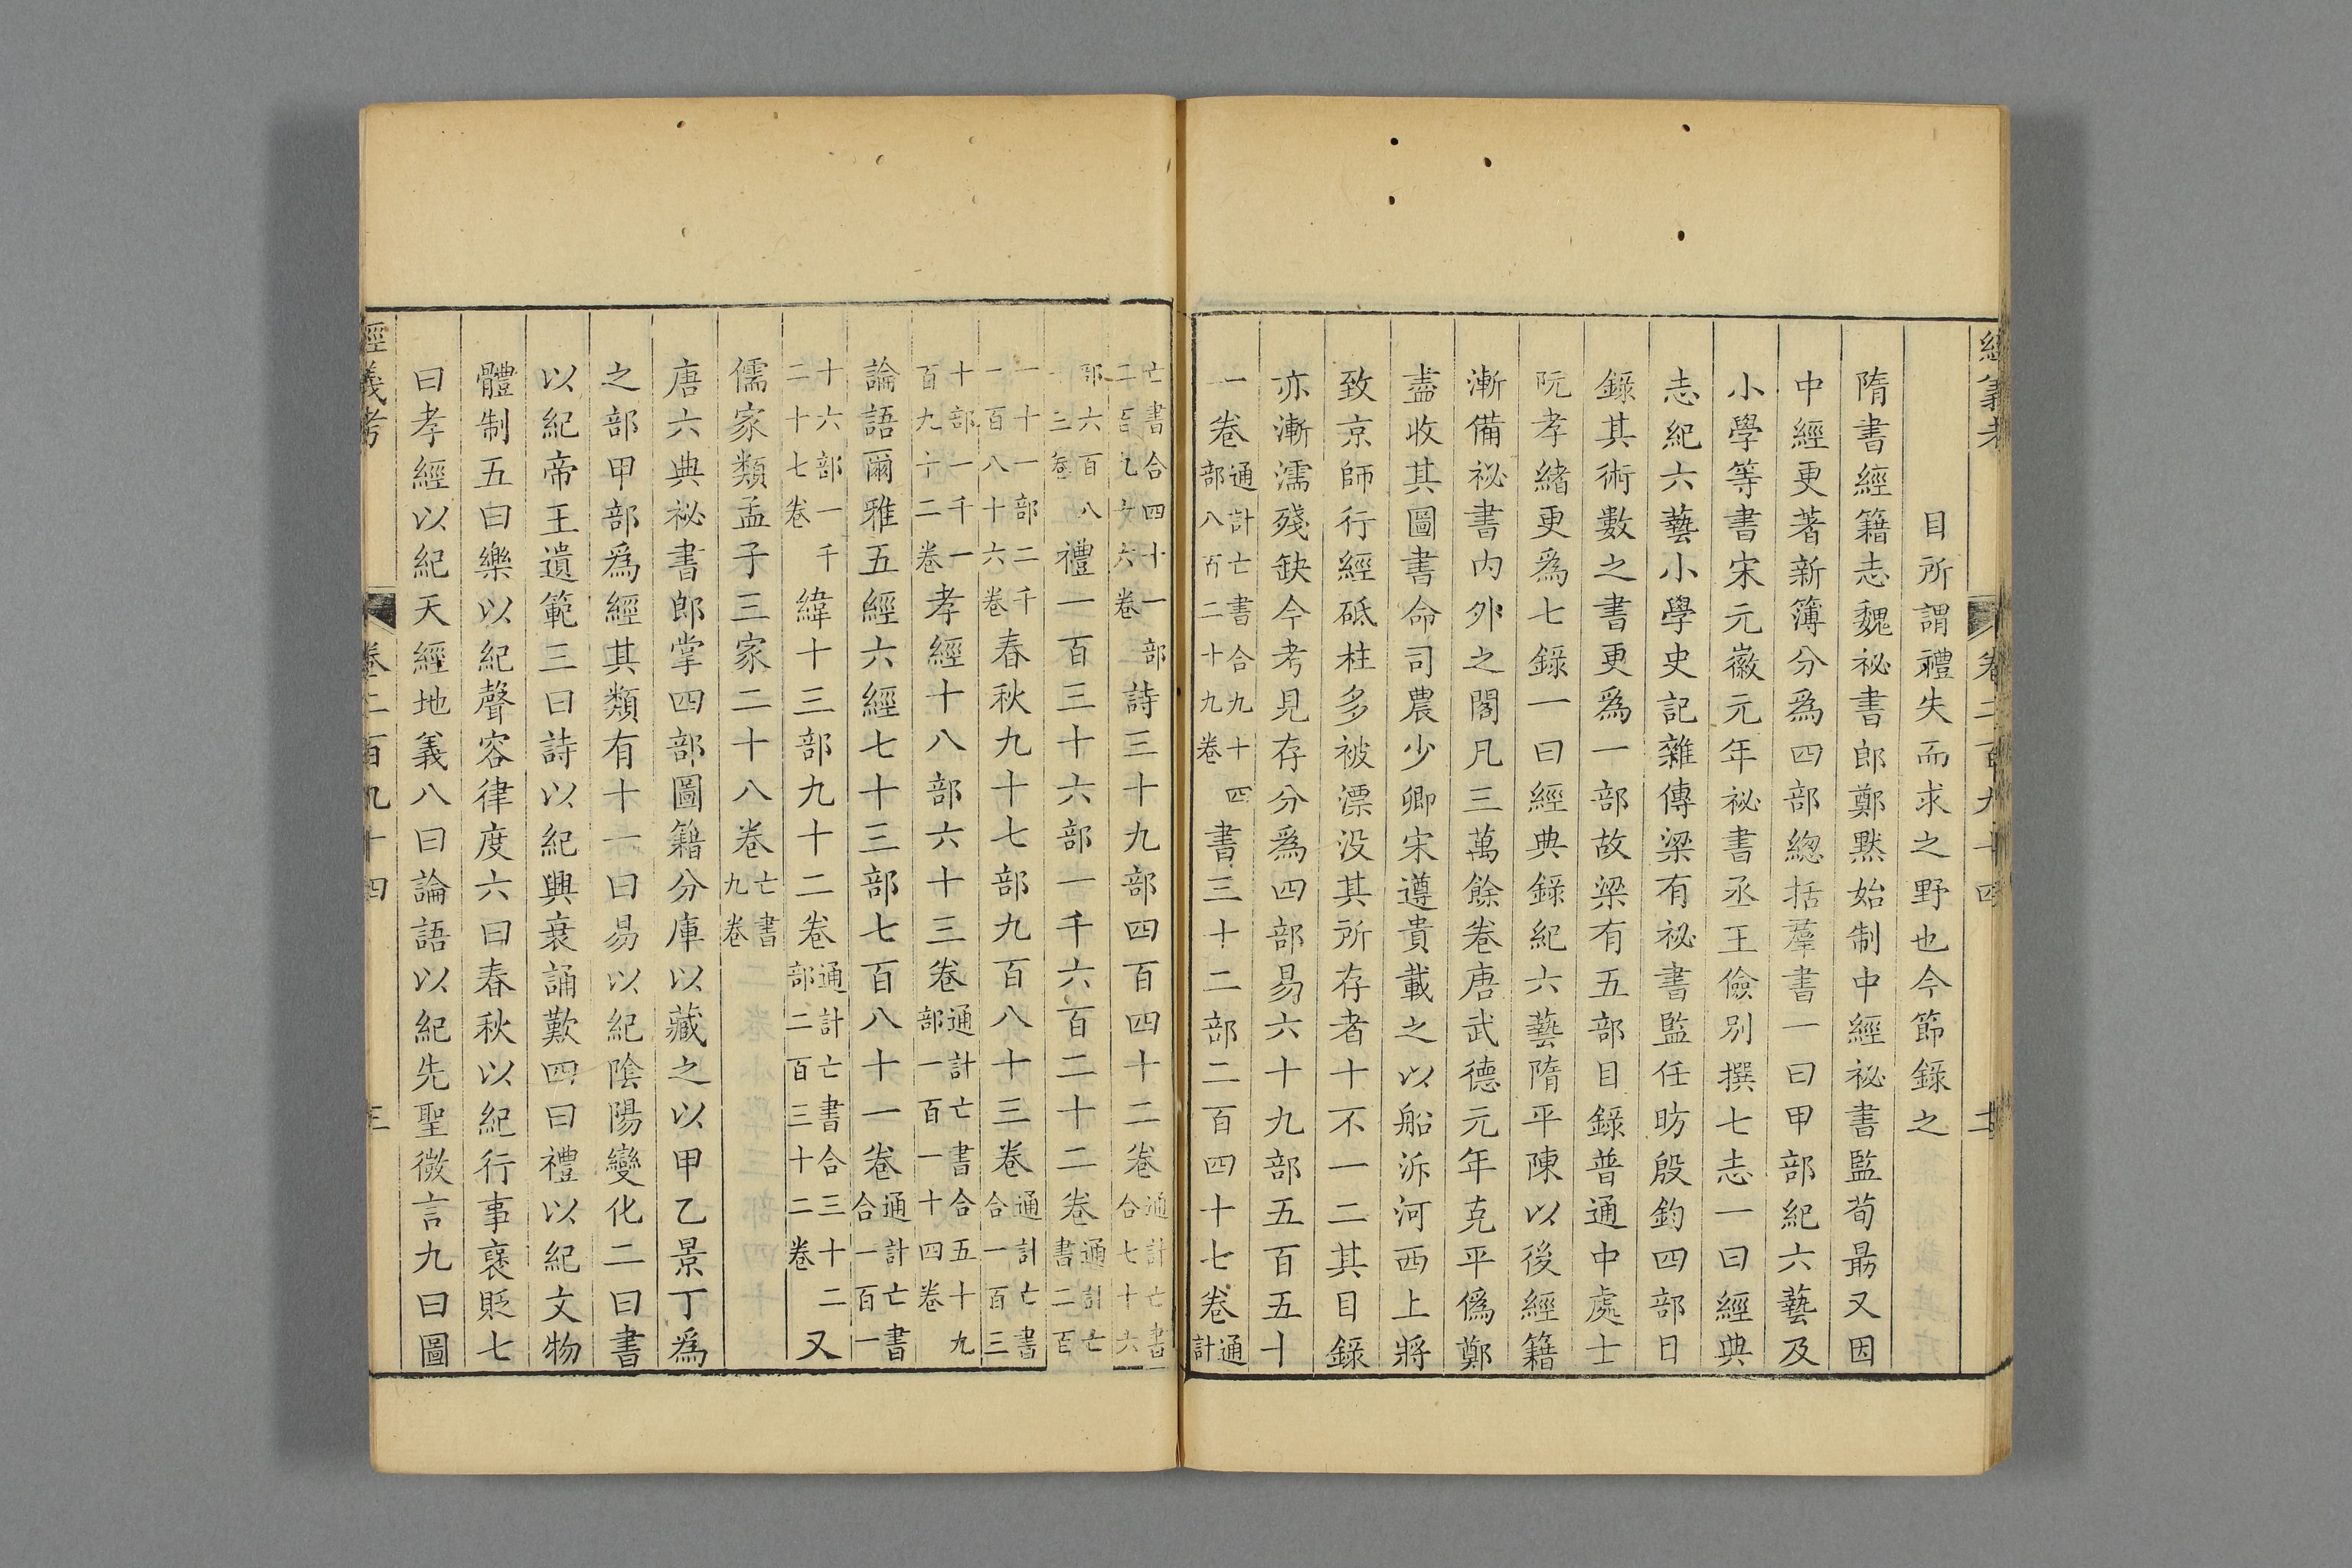 經義考 卷二百九十四
目所謂禮失而求之野也今節錄之
隋書經籍志魏祕書郎鄭默始制中經祕書監荀勗又因
中經更著新簿分爲四部緫括羣書一曰甲部紀六藝及
小學等書宋元徽元年祕書丞王儉別撰七志一曰經典
志紀六藝小學史記雜傳梁有祕書監任昉殷鈞四部目
錄其術數之書更爲一部故梁有五部目錄普通中處士
阮孝緒更爲七錄一曰經典錄紀六藝隋平陳以後經籍
漸備祕書内外之閣凡三萬餘卷唐武德元年克平僞鄭
盡收其圖書命司農少卿宋遵貴載之以船泝河西上將
致京師行經砥柱多被漂沒其所存者十不一二其目錄
亦漸濡殘缺今考見存分爲四部易六十九部五百五十
一卷通計亡書合九十四部八百二十九卷書三十二部二百四十七卷通計
亡書合四十一部二百九十六卷詩三十九部四百四十二卷通計亡書合七十六
部六百八十三卷禮一百三十六部一千六百二十二卷通計亡書二百
一十一部二千一百八十六卷春秋九十七部九百八十三卷通計亡書合一百三
十部一千一百九十二卷孝經十八部六十三卷通計亡書合五十九部一百一十四卷
論語爾雅五經六經七十三部七百八十一卷通計亡書合一百一
十六部一千二十七卷緯十三部九十二卷通計亡書合三十二部二百三十二卷又
儒家類孟子三家二十八卷亡書九卷
唐六典祕書郎掌四部圖籍分庫以藏之以甲乙景丁爲
之部甲部爲經其類有十一曰易以紀陰陽變化二曰書
以紀帝王遺範三曰詩以紀興衰誦歎四曰禮以紀文物
體制五曰樂以紀聲容律度六曰春秋以紀行事襃貶七
曰孝經以紀天經地義八曰論語以紀先聖微言九曰圖
經義考 卷二百九十四 三